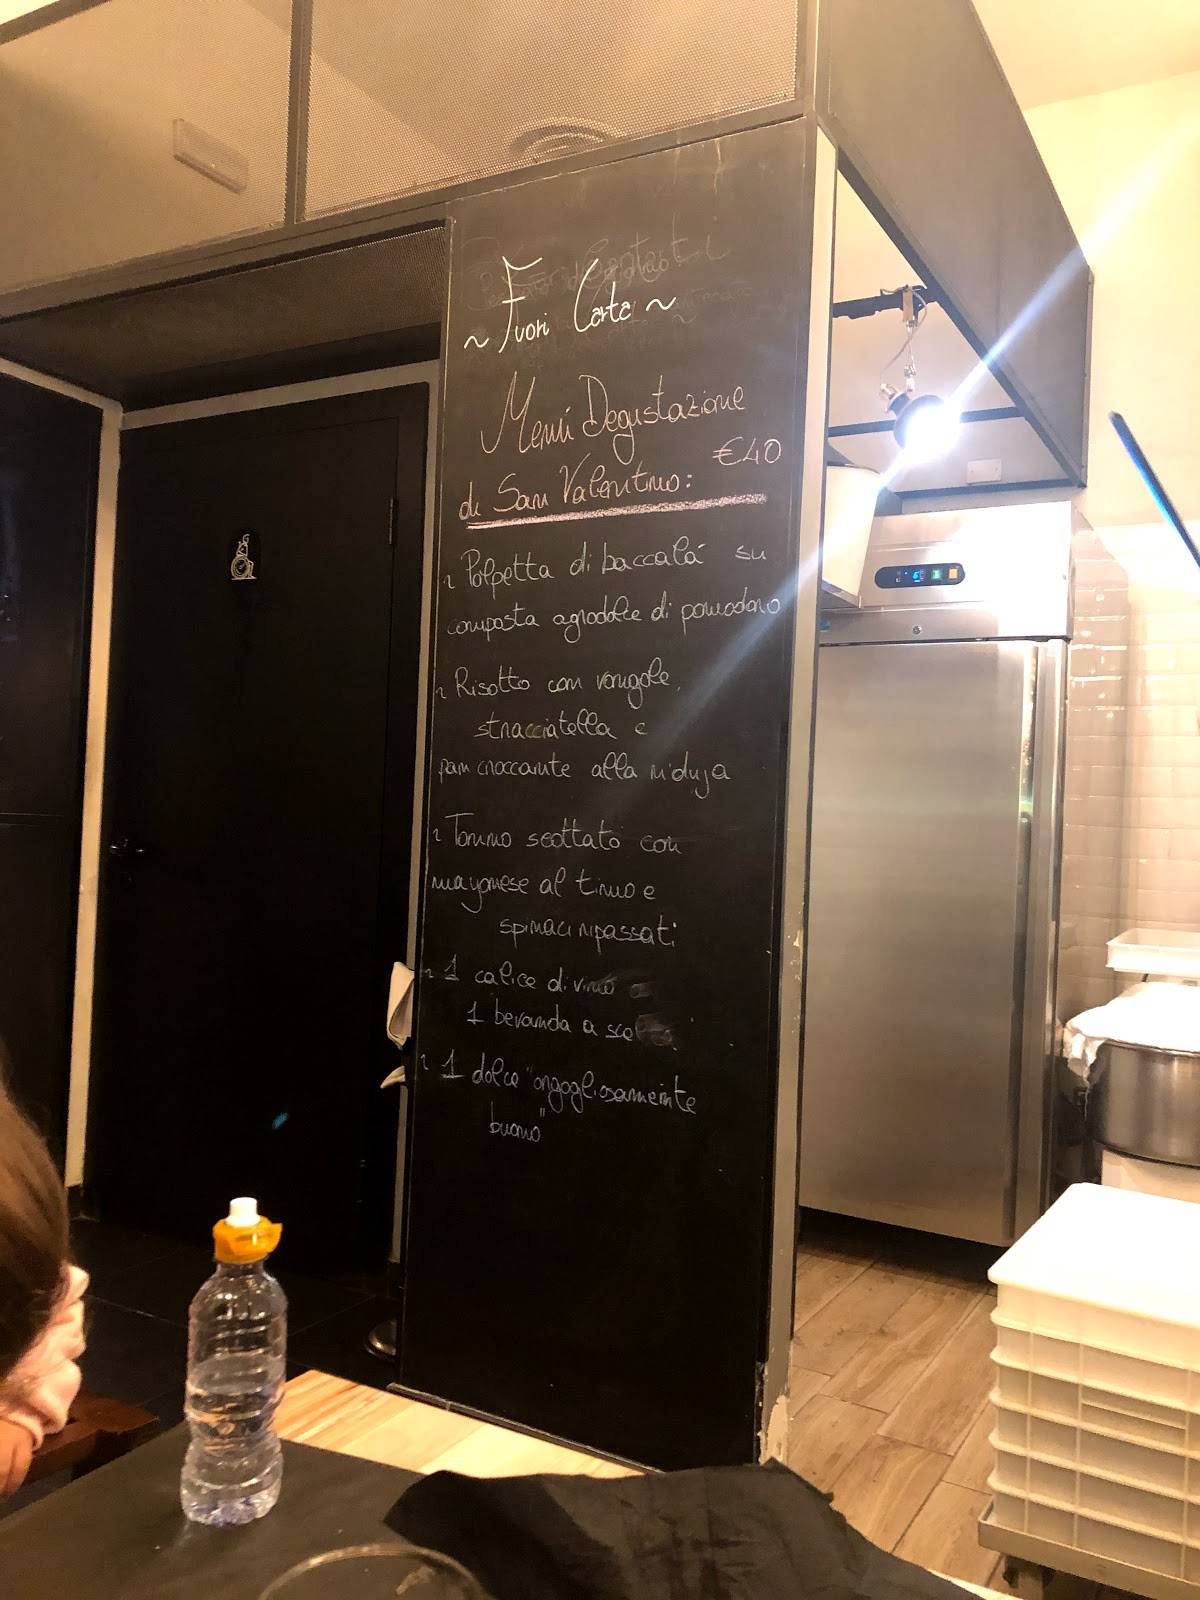 ~ Fuori Carta ~
Menú Degustazione
di San Valentino: €40
~ Polpetta di baccalá su
composta agrodolce di pomodoro
~ Risotto con vongole,
stracciatella e
pan croccante alla nduja
~ Tonno scottato con
mayonese al timo e
spinaci ripassati
~ 1 calice di vino o
1 bevanda a scelta
~ 1 dolce "orgogliosamente
buono"